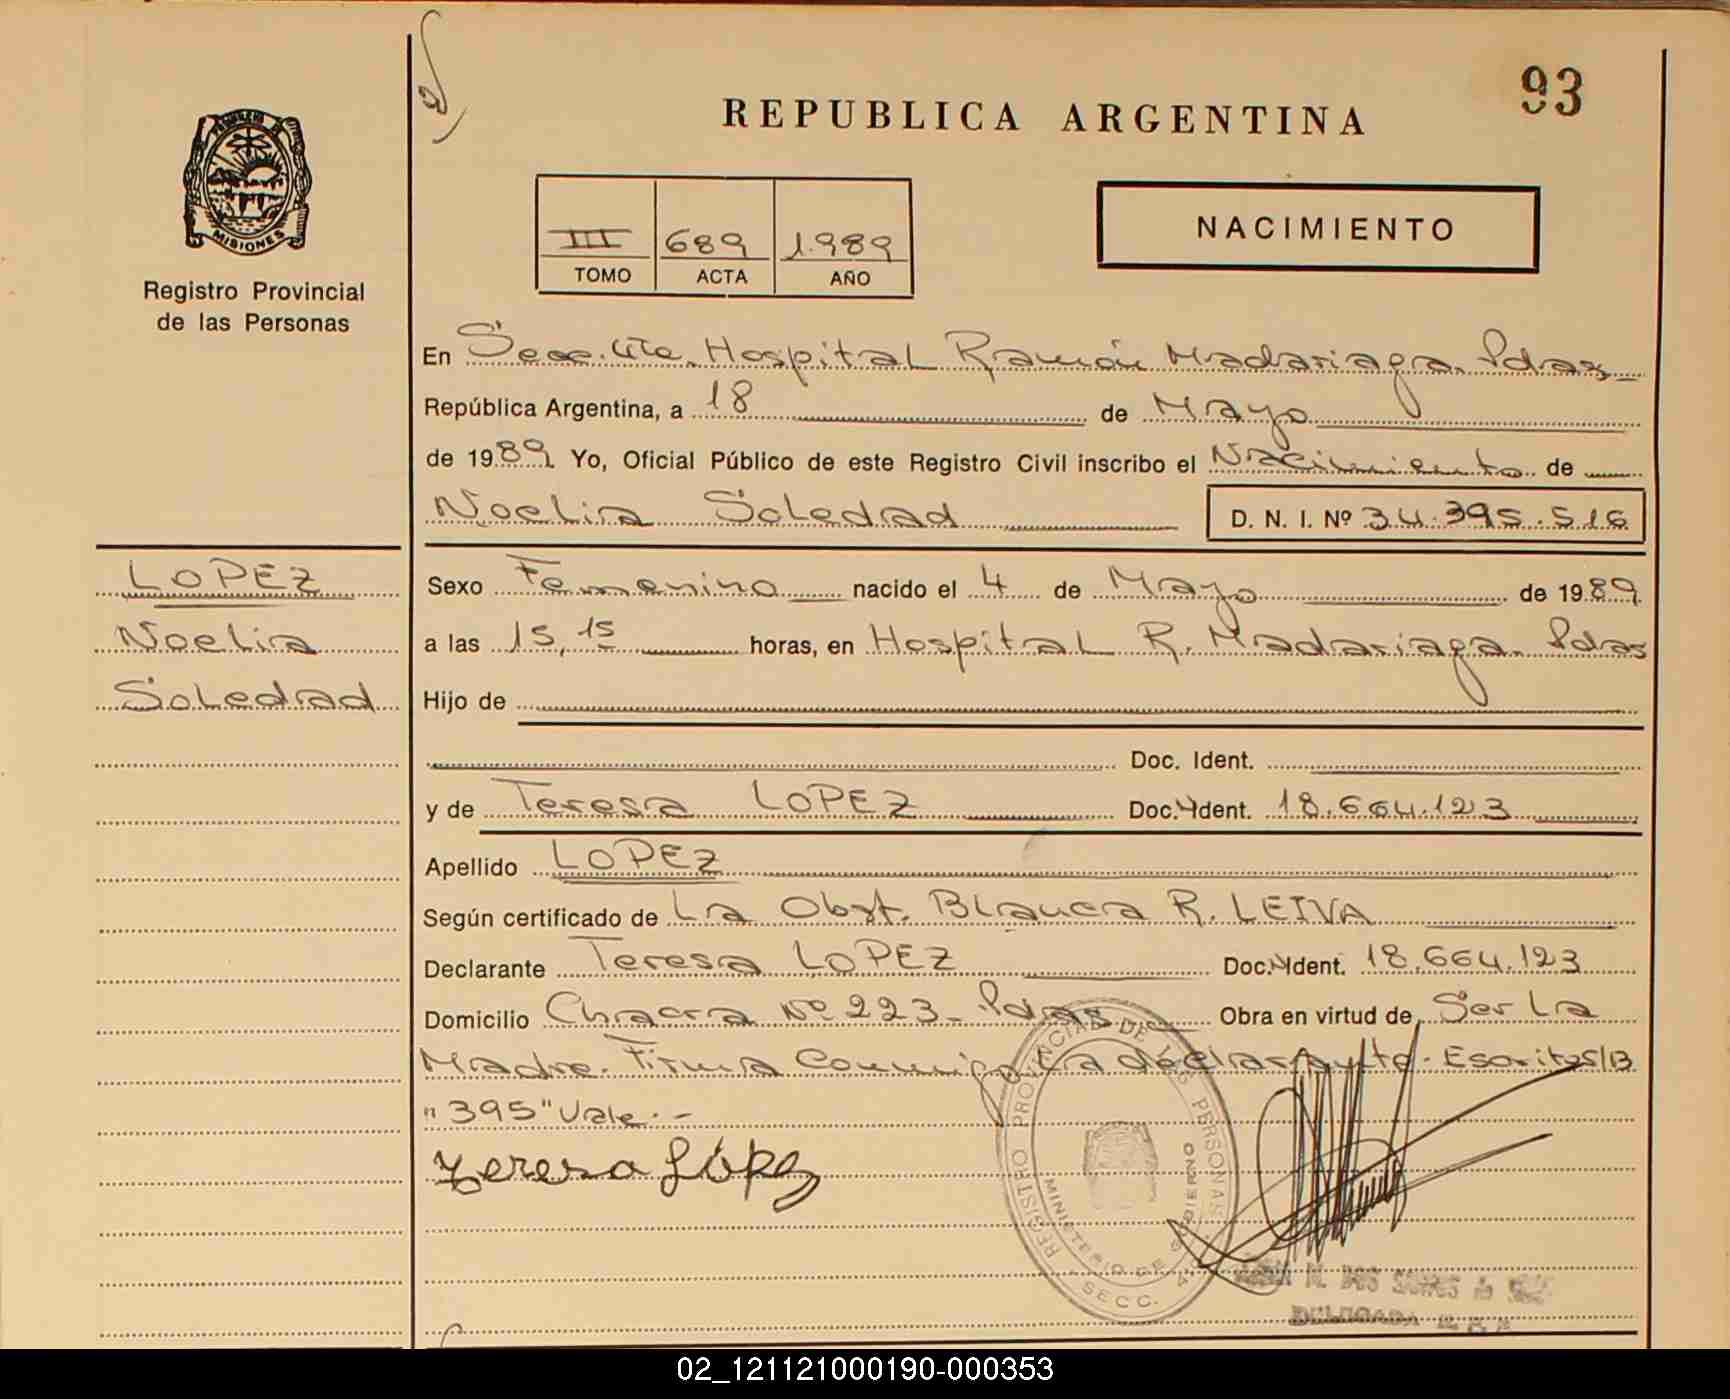 93
REPUBLICA ARGENTINA
MISIONES
Registro Provincial
de las Personas
III 689 1.989
TOMO ACTA AÑO
NACIMIENTO
En Secc. 4ta. Hospital Ramón Madariaga. Pdas
República Argentina, a 18 de Mayo
de 1989 Yo, Oficial Público de este Registro Civil inscribo el Nacimiento de
Noelia Soledad D. N. I. Nº 34.395.516
LOPEZ
Noelia
Soledad
Sexo Femenino nacido el 4 de Mayo de 1989
a las 15,15 horas, en Hospital R. Madariaga. Pdas
Hijo de
Doc. Ident.
y de Teresa LOPEZ Doc. Ident. 18.664.123
Apellido LOPEZ
Según certificado de La Obst. Blanca R. LEIVA
Declarante Teresa LOPEZ Doc. Ident. 18.664.123
Domicilio Chacra Nº 223 - Pdas Obra en virtud de Ser la
Madre. Firma Conmigo la declarante. Escrito s/B
"395" Vale. -
Teresa López
REGISTRO PROVINCIAL DE LAS PERSONAS
MINISTERIO DE GOBIERNO
SECC. 4
M. DOS SANTOS de
DELEGADA
02_121121000190-000353